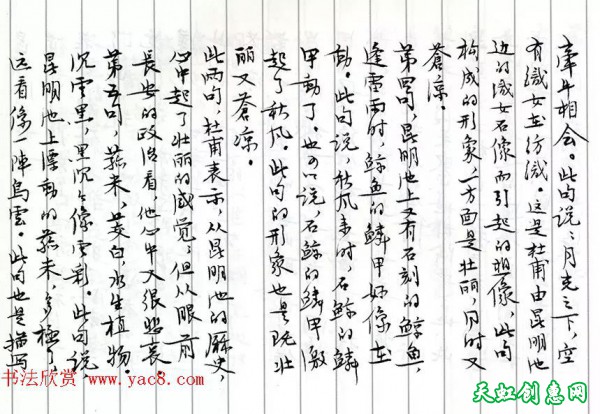 牵牛相会。此句说：月光之下，空
有织女在纺织。这是杜甫由昆明池
边的织女石像而引起的想像，此句
构成的形象，一方面是壮丽，同时又
苍凉。
第四句，昆明池上又有石刻的鲸鱼，
逢雷雨时，鲸鱼的鳞甲好像在
动。此句说，秋风来时，石鲸的鳞
甲动了。也可以说，石鲸的鳞甲激
起了秋风。此句的形象也是既壮
丽又苍凉。
此两句，杜甫表示，从昆明池的历史，
心中起了壮丽的感觉；但从眼前
长安的政治看，他心中又很悲哀。
第五句，菰米，茭白水生植物。
沉云黑，黑沉沉像云彩，此句说，
昆明池上漂动的菰米，多极了
远看像一阵乌云。此句也是描写
书法欣赏 www.yac8.com
天虹创意网